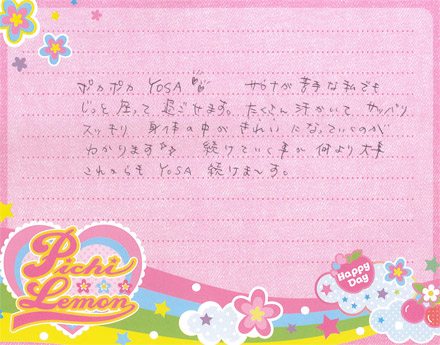 ポカポカ YOSA サウナが苦手な私でも
じっと座って過ごせます。たくさん汗かいて サッパリ
スッキリ 身体の中がきれいになっていくのが
わかります 続けていく事が何より大事
これからも YOSA 続けま〜す。
Pichi
Lemon
Happy
Day